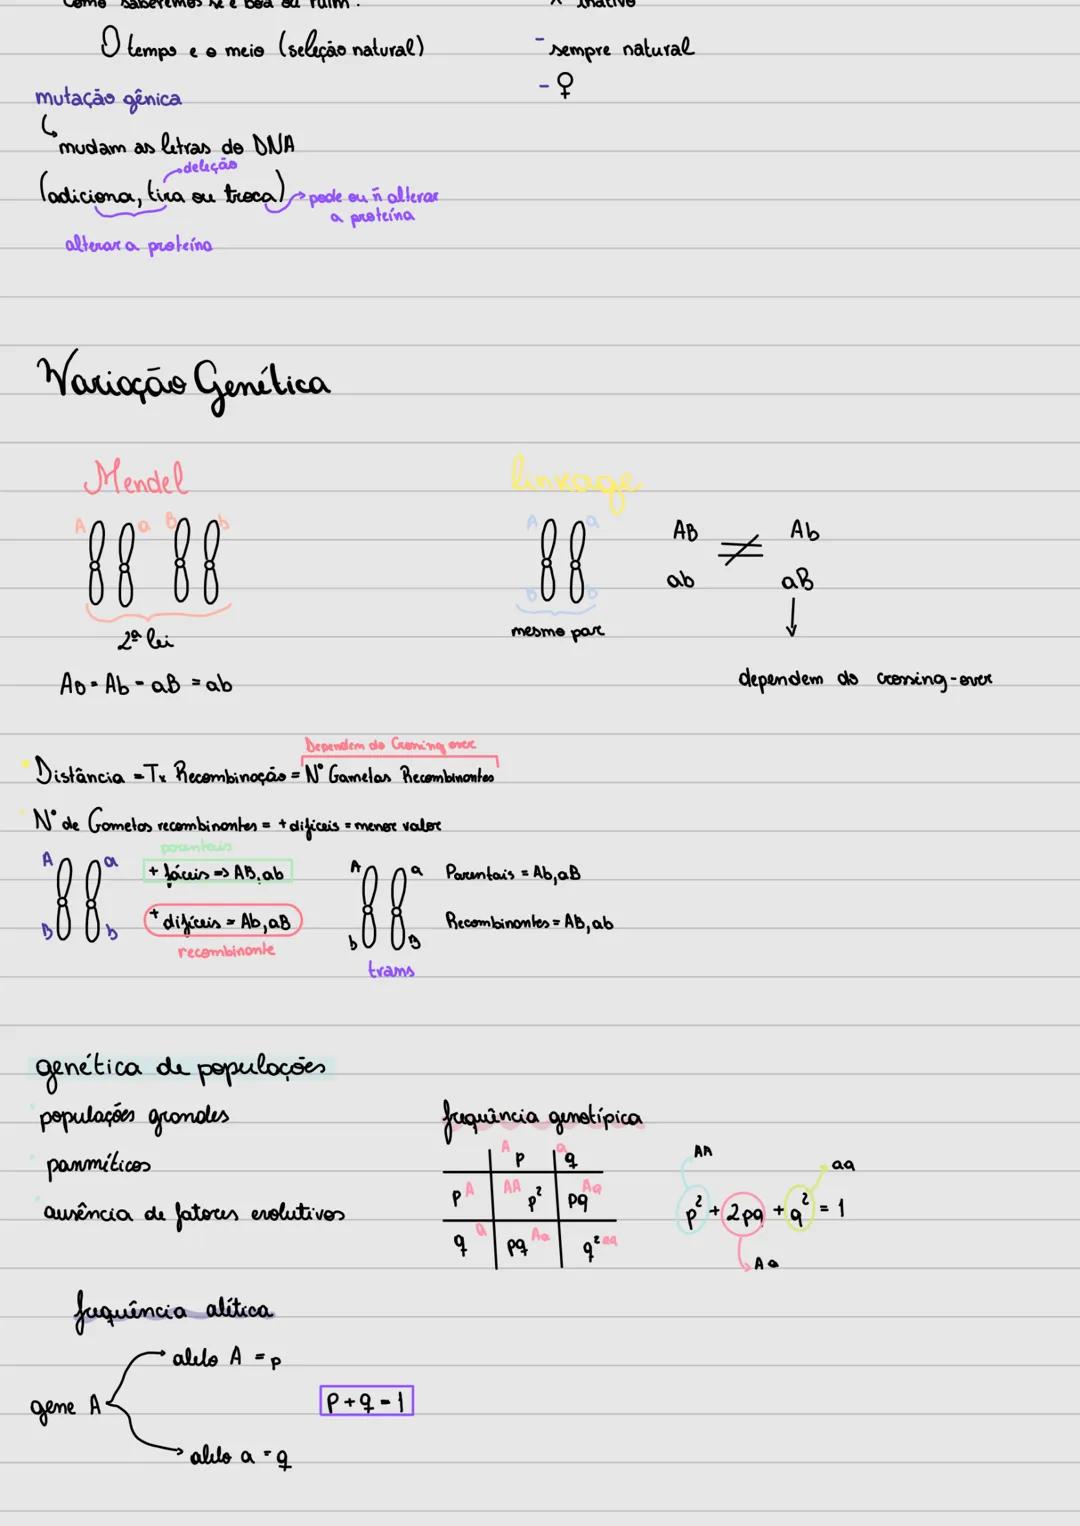 Como saberemos se é boa ou ruim?
O tempo e o meio (seleção natural)
inativo
- sempre natural
- ♀
mutação gênica
mudam as letras do DNA
deleção
(adiciona, tira ou troca)
pode ou ñ alterar
a proteína
alterar a proteína
Variação Genética
Mendel
A a B b
2ª lei
AB = Ab = aB = ab
linkage
A a
B b
mesmo par
AB ≠ Ab
ab aB
dependem do crossing-over
Dependem do Crossing over
Distância = Tx Recombinação = Nº Gametas Recombinantes
Nº de Gametos recombinantes = + difíceis = menor valor
parentais
A a
+ fáceis => AB, ab
B b
+ difíceis = Ab, aB
recombinante
A a
Parentais = Ab, aB
b B
Recombinantes = AB, ab
trans
genética de populações
populações grandes
panmíticos
ausência de fatores evolutivos
frequência genotípica
A p a q
p A AA p² pq Aa
q a pq Aa q² aa
AA aa
p² + 2pq + q² = 1
Aa
frequência alítica
alelo A = p
gene A
p + q = 1
alelo a = q